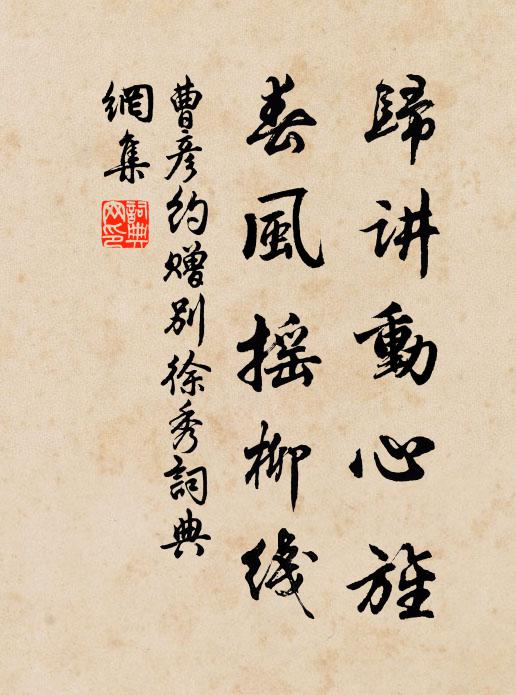 歸讲動心旌
春風摇柳綫
曹彦约赠别徐秀詞典
網集
詞典
网印